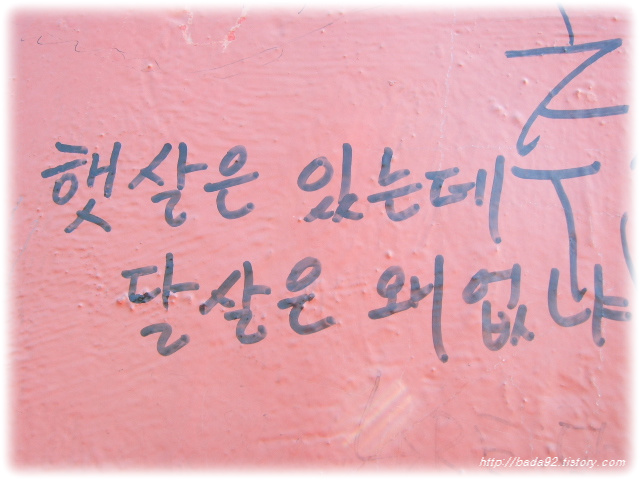 햇살은 있는데
달살은 왜 없냐
http://bada92.tistory.com